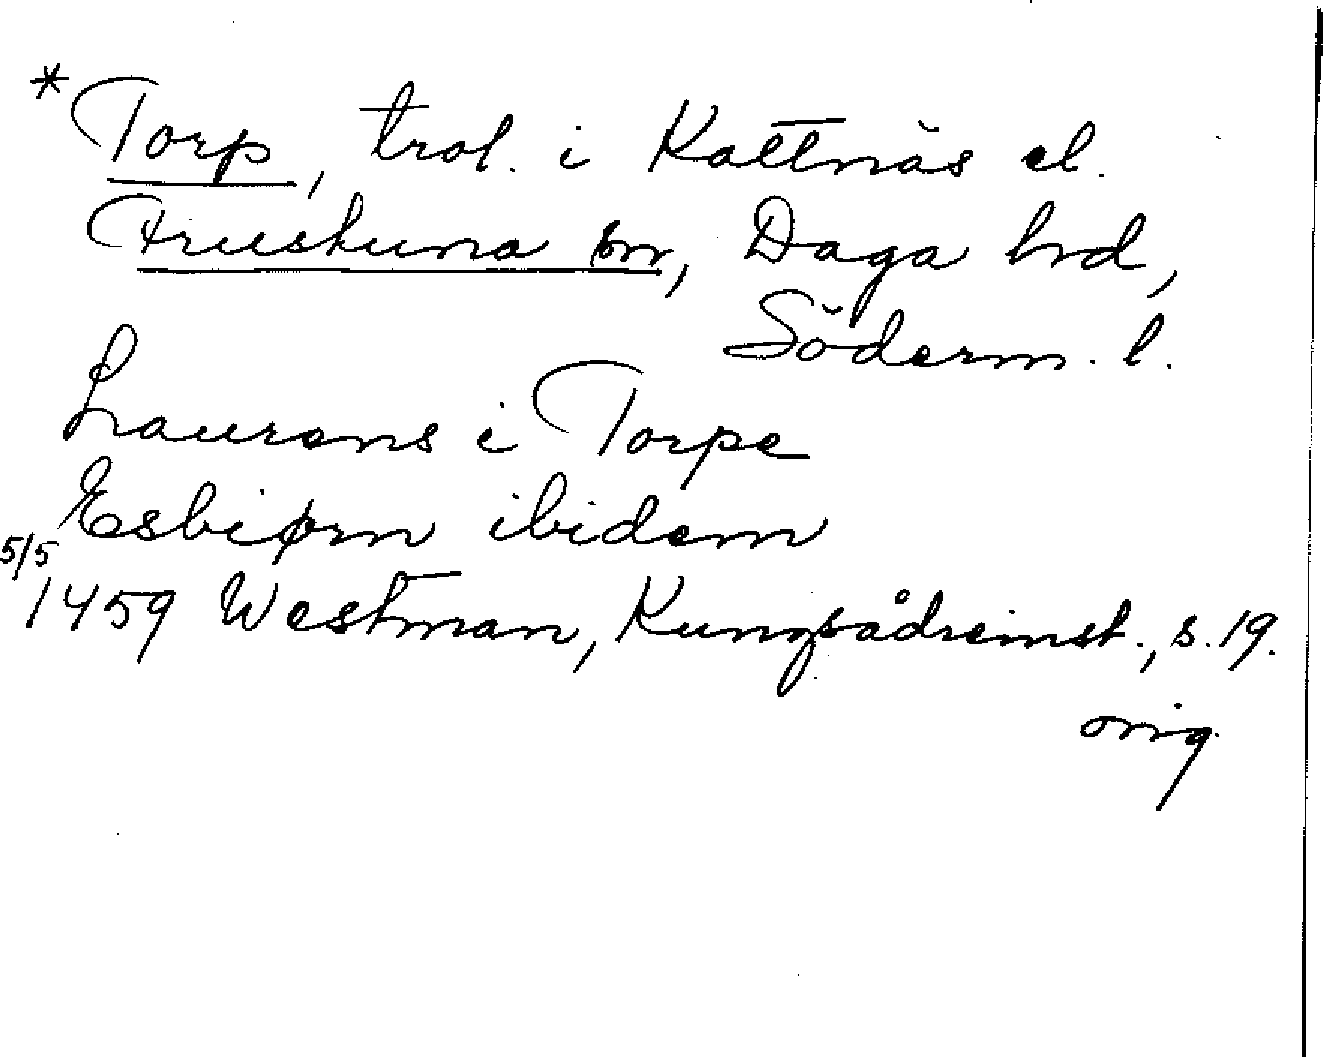 *Torp, trol. i Kattnäs el.
Frustuna snr, Daga hrd,
Söderm. l.
Laurens i Torpe
Esbiørn ibidem
5/5
1459 Westman, Kungsådreinst., s. 19.
orig.